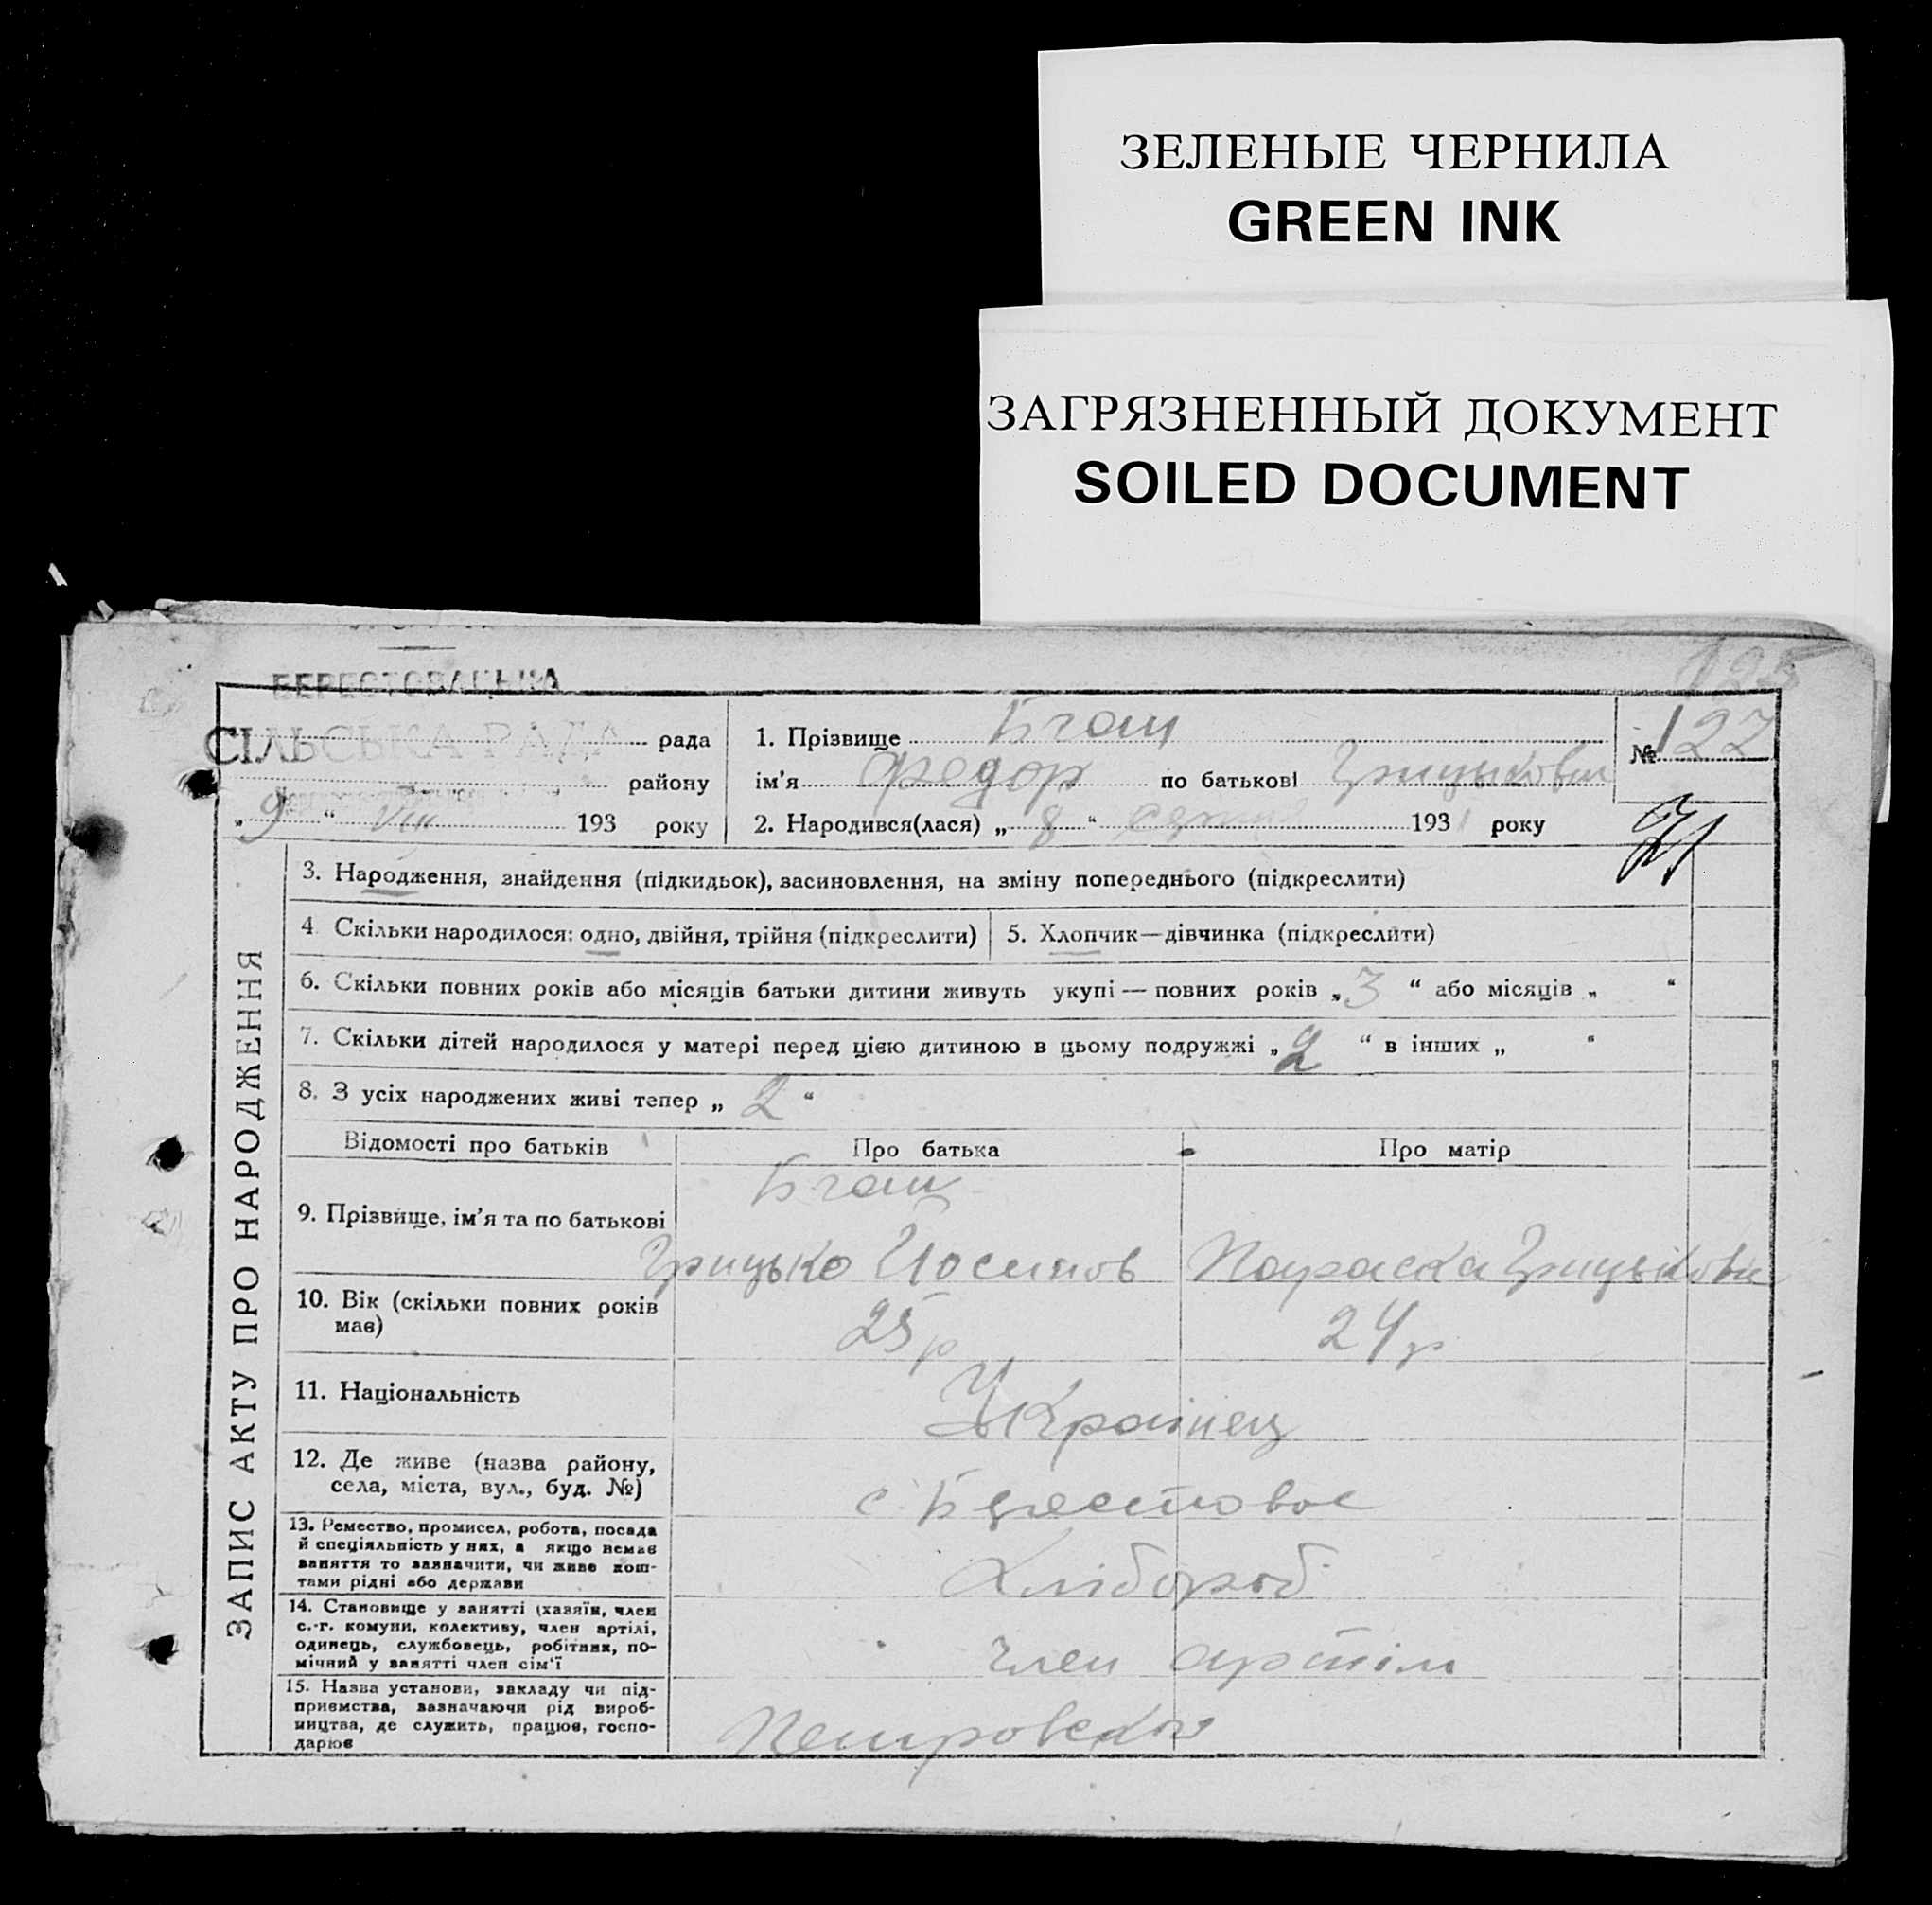 ЗЕЛЕНЫЕ ЧЕРНИЛА
GREEN INK
ЗАГРЯЗНЕННЫЙ ДОКУМЕНТ
SOILED DOCUMENT
125
БЕРЕСТОВАЦЬКА
СІЛЬСЬКА РАДА рада
району
„ 9 “ VIII 193 року
1. Прізвище Бгащ
ім'я Федор по батькові Грицькови
2. Народився(лася) „ 8 “ серпня 1931 року
№ 127
ЗАПИС АКТУ ПРО НАРОДЖЕННЯ
3. Народження, знайдення (підкидьок), засиновлення, на зміну попереднього (підкреслити)
4. Скільки народилося: одно, двійня, трійня (підкреслити)
5. Хлопчик—дівчинка (підкреслити)
6. Скільки повних років або місяців батьки дитини живуть укупі — повних років „ 3 “ або місяців „ “
7. Скільки дітей народилося у матері перед цією дитиною в цьому подружжі „ 2 “ в інших „ “
8. З усіх народжених живі тепер „ 2 “
Відомості про батьків Про батька Про матір
9. Прізвище, ім'я та по батькові
Бгащ
Грицько Йосипов Параска Грицькови
10. Вік (скільки повних років
має)
25 р 24 р
11. Національність
Українец
12. Де живе (назва району,
села, міста, вул., буд. №)
с. Берестовое
13. Ремество, промисел, робота, посада
й спеціяльність у них, а якщо немає
заняття то зазначити, чи живе кош-
тами рідні або держави
Хлібороб
14. Становище у занятті (хазяїн, член
с.-г. комуни, колективу, член артілі,
одинець, службовець, робітник, по-
мічний у занятті член сім'ї
член артіли
15. Назва установи, закладу чи під-
приємства, зазначаючи рід вироб-
ництва, де служить, працює, госпо-
дарює
Петровского